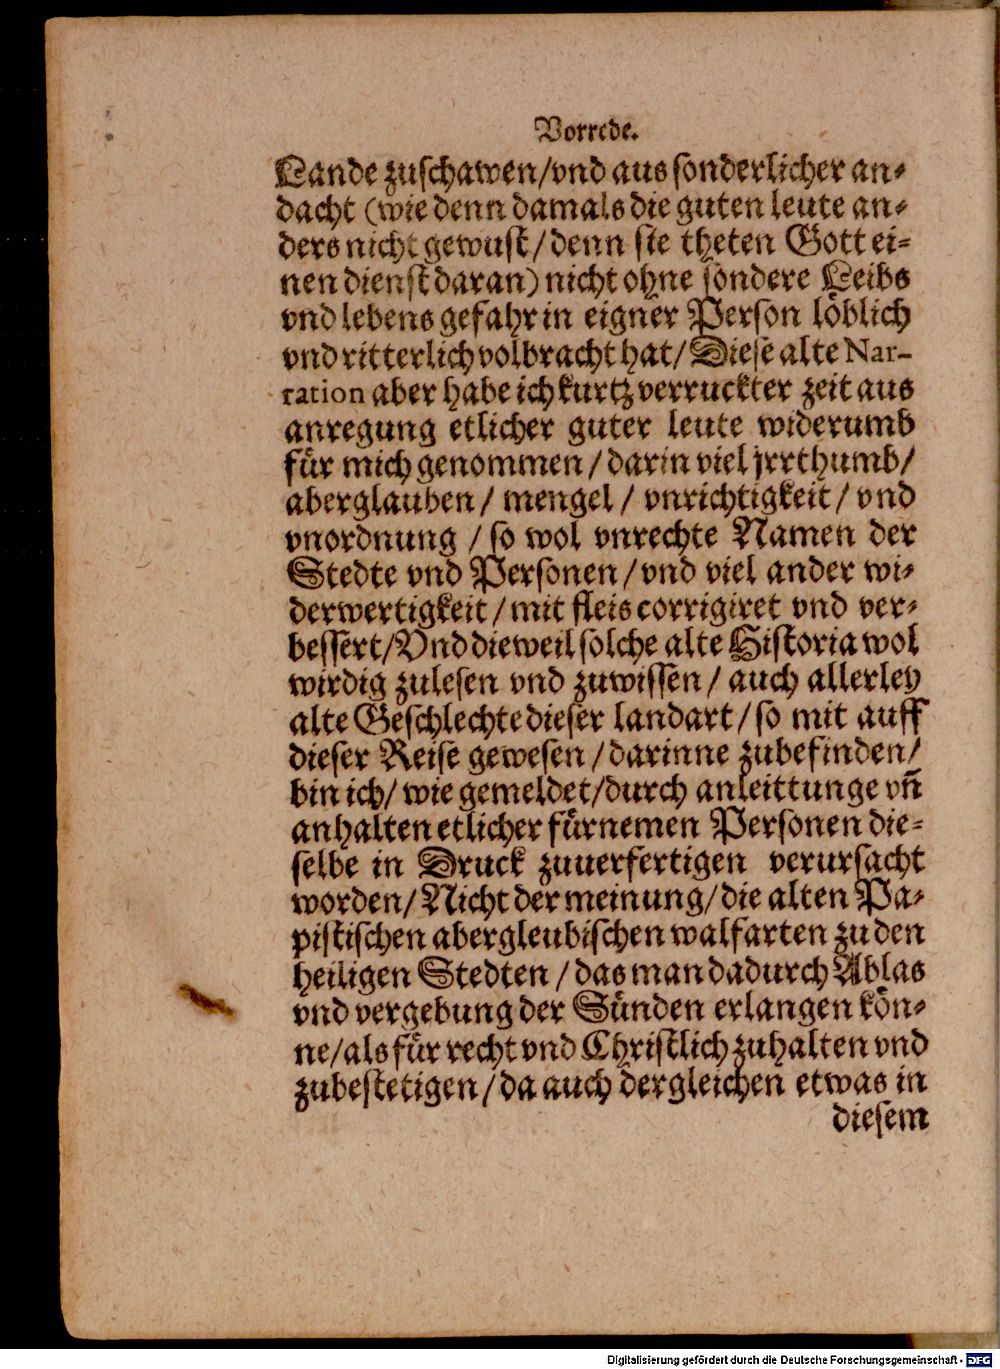 Vorrede.
Lande zuschawen/vnd aus sonderlicher an-
dacht (wie denn damals die guten leute an-
ders nicht gewust/denn sie theten Gott ei-
nen dienst daran) nicht ohne sondere Leibs
vnd lebens gefahr in eigner Person löblich
vnd ritterlich volbracht hat/Diese alte Nar-
ration aber habe ich kurtz verruckter zeit aus
anregung etlicher guter leute widerumb
für mich genommen/darin viel jrrthumb/
aberglauben/ mengel / vnrichtigkeit/ vnd
vnordnung / so wol vnrechte Namen der
Stedte vnd Personen/vnd viel ander wi-
derwertigkeit/mit fleis corrigiret vnd ver-
bessert/Vnd dieweil solche alte Historia wol
wirdig zulesen vnd zuwissen/ auch allerley
alte Geschlechte dieser landart/so mit auff
dieser Reise gewesen/darinne zubefinden/
bin ich/ wie gemeldet/durch anleittunge vñ
anhalten etlicher fürnemen Personen die-
selbe in Druck zuuerfertigen verursacht
worden/Nicht der meinung/die alten Pa-
pistischen abergleubischen walfarten zu den
heiligen Stedten/das man dadurch Ablas
vnd vergebung der Sünden erlangen kön-
ne/als für recht vnd Christlich zuhalten vnd
zubestetigen/da auch dergleichen etwas in
diesem
Digitalisierung gefördert durch die Deutsche Forschungsgemeinschaft - DFG